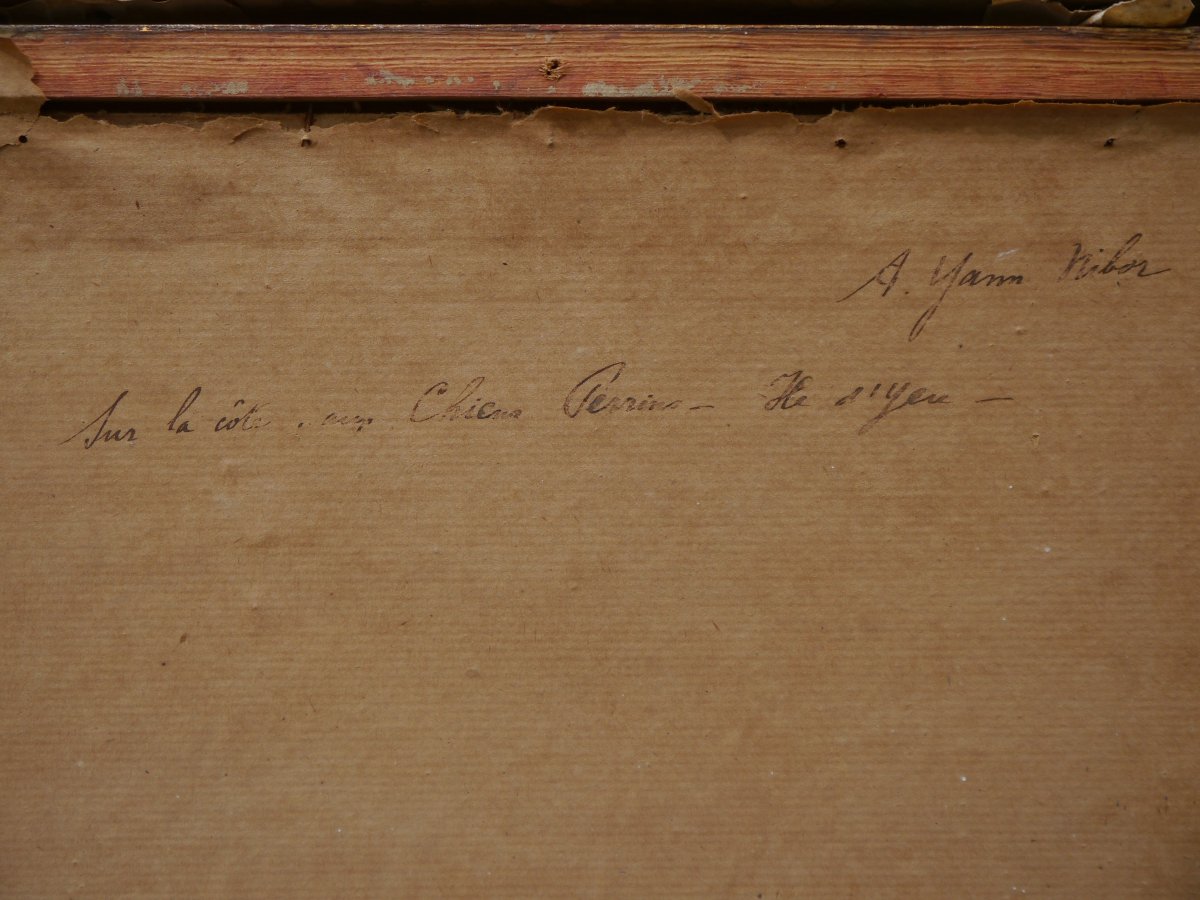 A. Yann Nibor
Sur la côte aux Chiens Perrins - Ile d'Yeu -